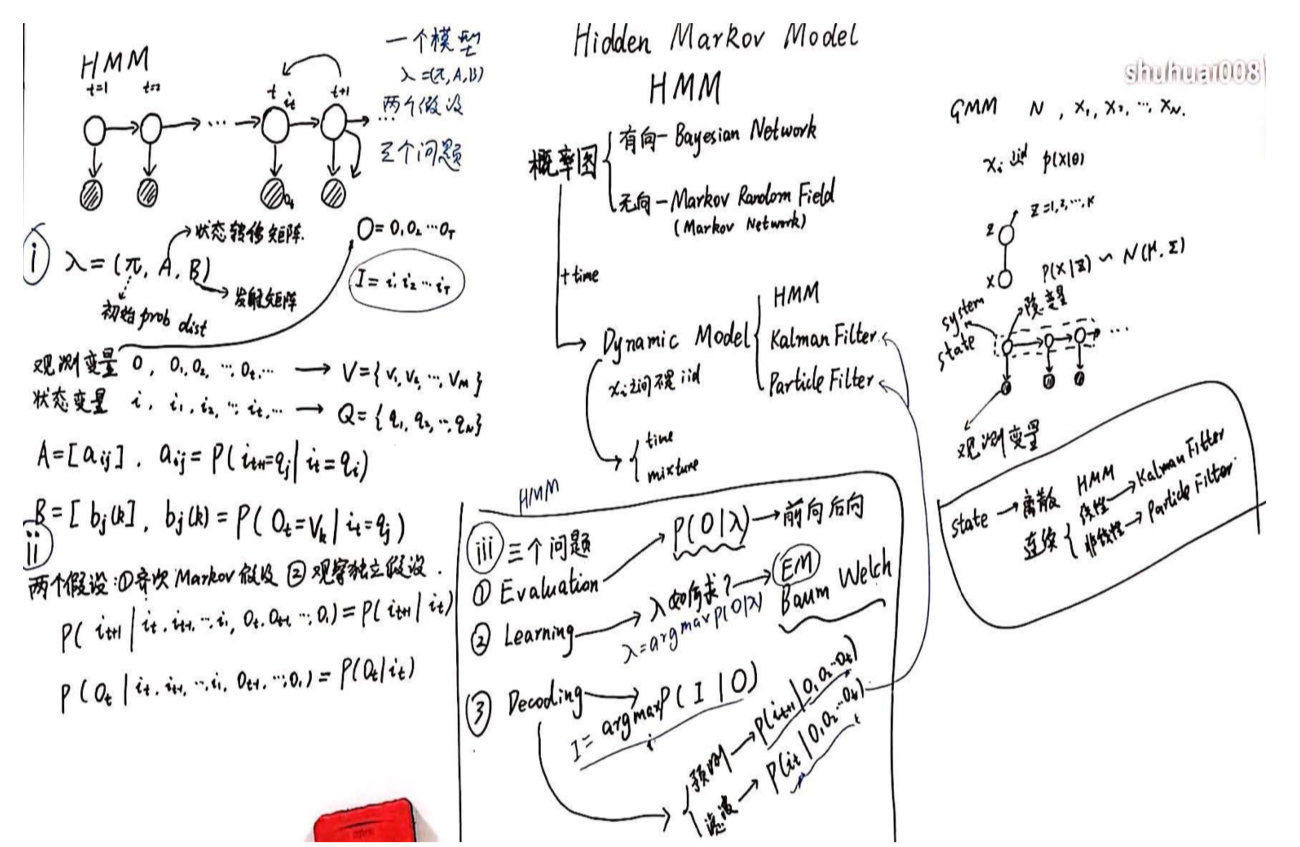 Hidden Markov Model
HMM
shuhuai008
HMM
t=1 t=2 t i_t t+1
o_t
一个模型
λ=(π, A, B)
两个假设
三个问题
i
λ = (π, A, B)
状态转移矩阵.
发射矩阵
初始 prob dist
O = o₁ o₂ ⋯ o_T
I = i₁ i₂ ⋯ i_T
观测变量 o, o₁, o₂, ⋯, o_t, ⋯ → V = {v₁, v₂, ⋯, v_M}
状态变量 i, i₁, i₂, ⋯, i_t, ⋯ → Q = {q₁, q₂, ⋯, q_N}
A = [a_ij], a_ij = P(i_t+1 = q_j | i_t = q_i)
B = [b_j(k)], b_j(k) = P(o_t = v_k | i_t = q_j)
ii
两个假设: ① 齐次 Markov 假设 ② 观察独立假设.
P(i_t+1 | i_t, i_t-1, ⋯, i₁, o_t, o_t-1, ⋯, o₁) = P(i_t+1 | i_t)
P(o_t | i_t, i_t-1, ⋯, i₁, o_t-1, ⋯, o₁) = P(o_t | i_t)
概率图
有向 — Bayesian Network
无向 — Markov Random Field
(Markov Network)
+ time
Dynamic Model
HMM
Kalman Filter
Particle Filter
x_i 之间不是 iid
time
mixture
HMM
iii 三个问题
① Evaluation → P(O|λ) → 前向后向
② Learning → λ 如何求? → EM
Baum Welch
λ = arg max P(O|λ)
③ Decoding → I = arg max P(I | O)
i
预测 → P(i_t+1 | o₁, o₂ ⋯ o_t)
滤波 → P(i_t | o₁, o₂ ⋯ o_t)
t
GMM N, x₁, x₂, ⋯, x_N.
x_i iid P(X|θ)
z z=1,2,⋯,K
x
P(X|Z) ∽ N(μ, Σ)
system
state
隐变量
⋯
观测变量
state → 离散 HMM
连续 线性 → Kalman Filter
非线性 → Particle Filter.